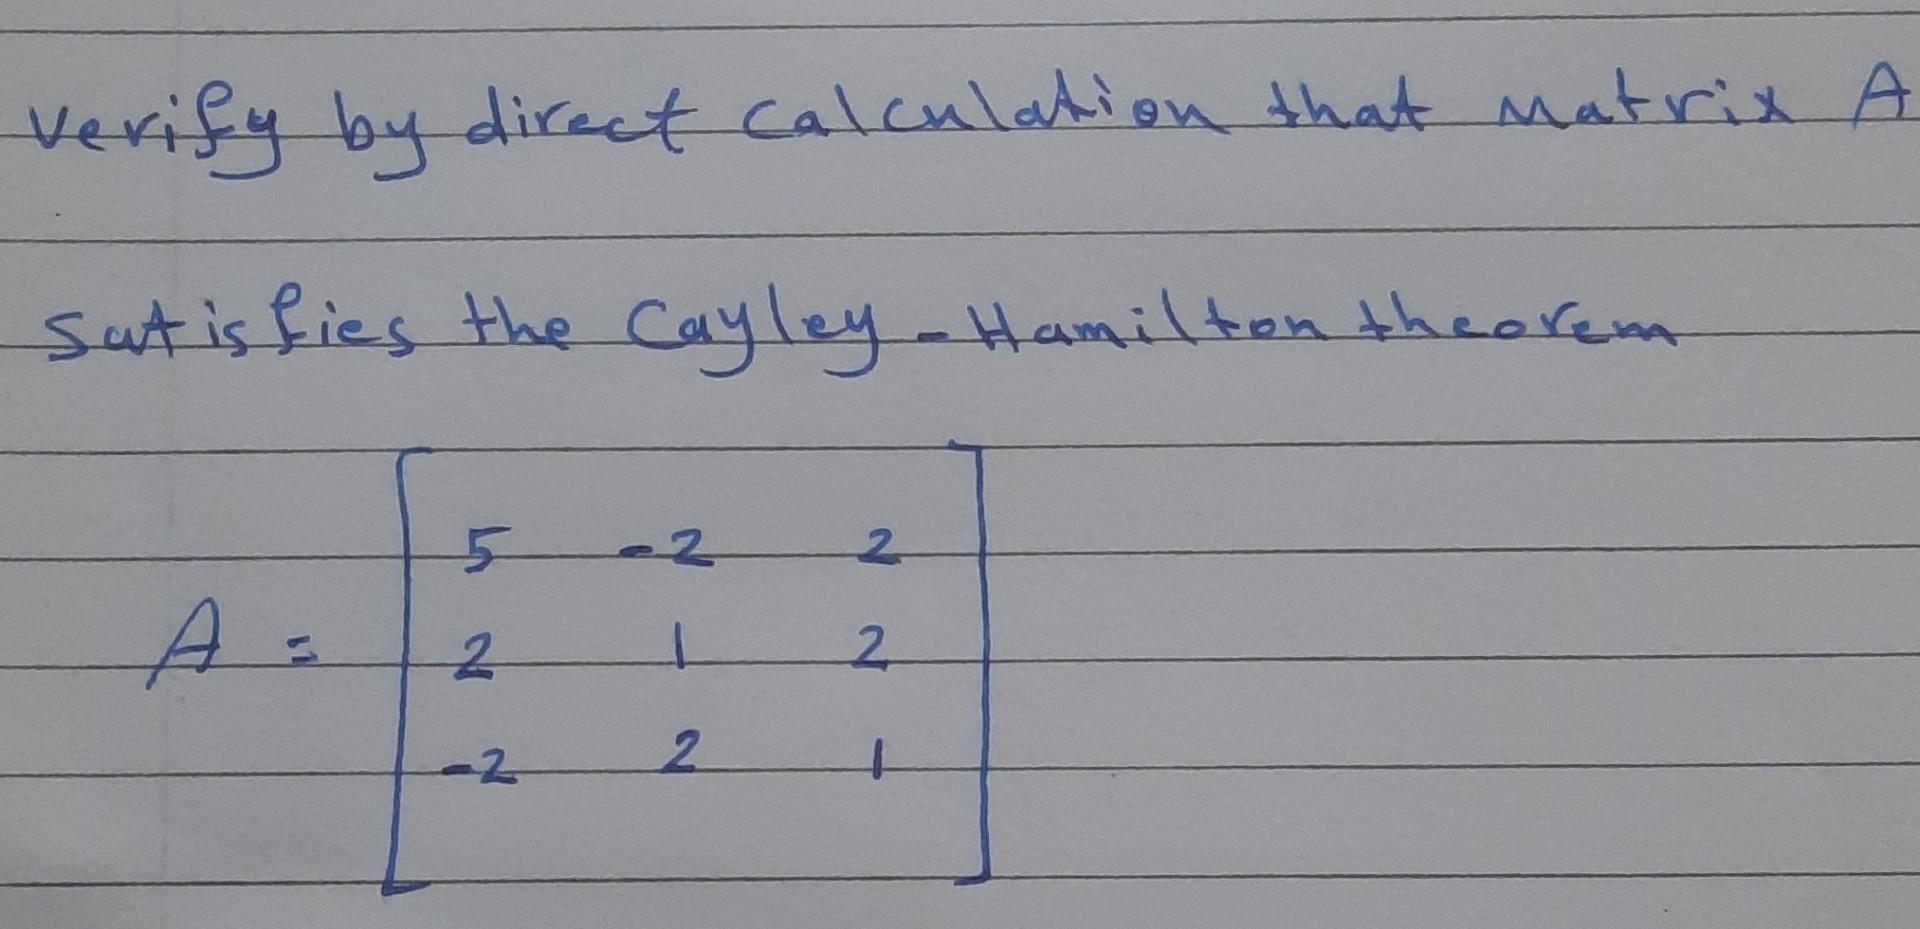 verify by direct calculation that matrix A
satisfies the Cayley-Hamilton theorem
5 -2 2
A = 2 1 2
-2 2 1